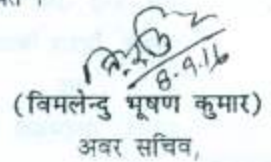 8.9.16
(विमलेन्दु भूषण कुमार)
अवर सचिव,